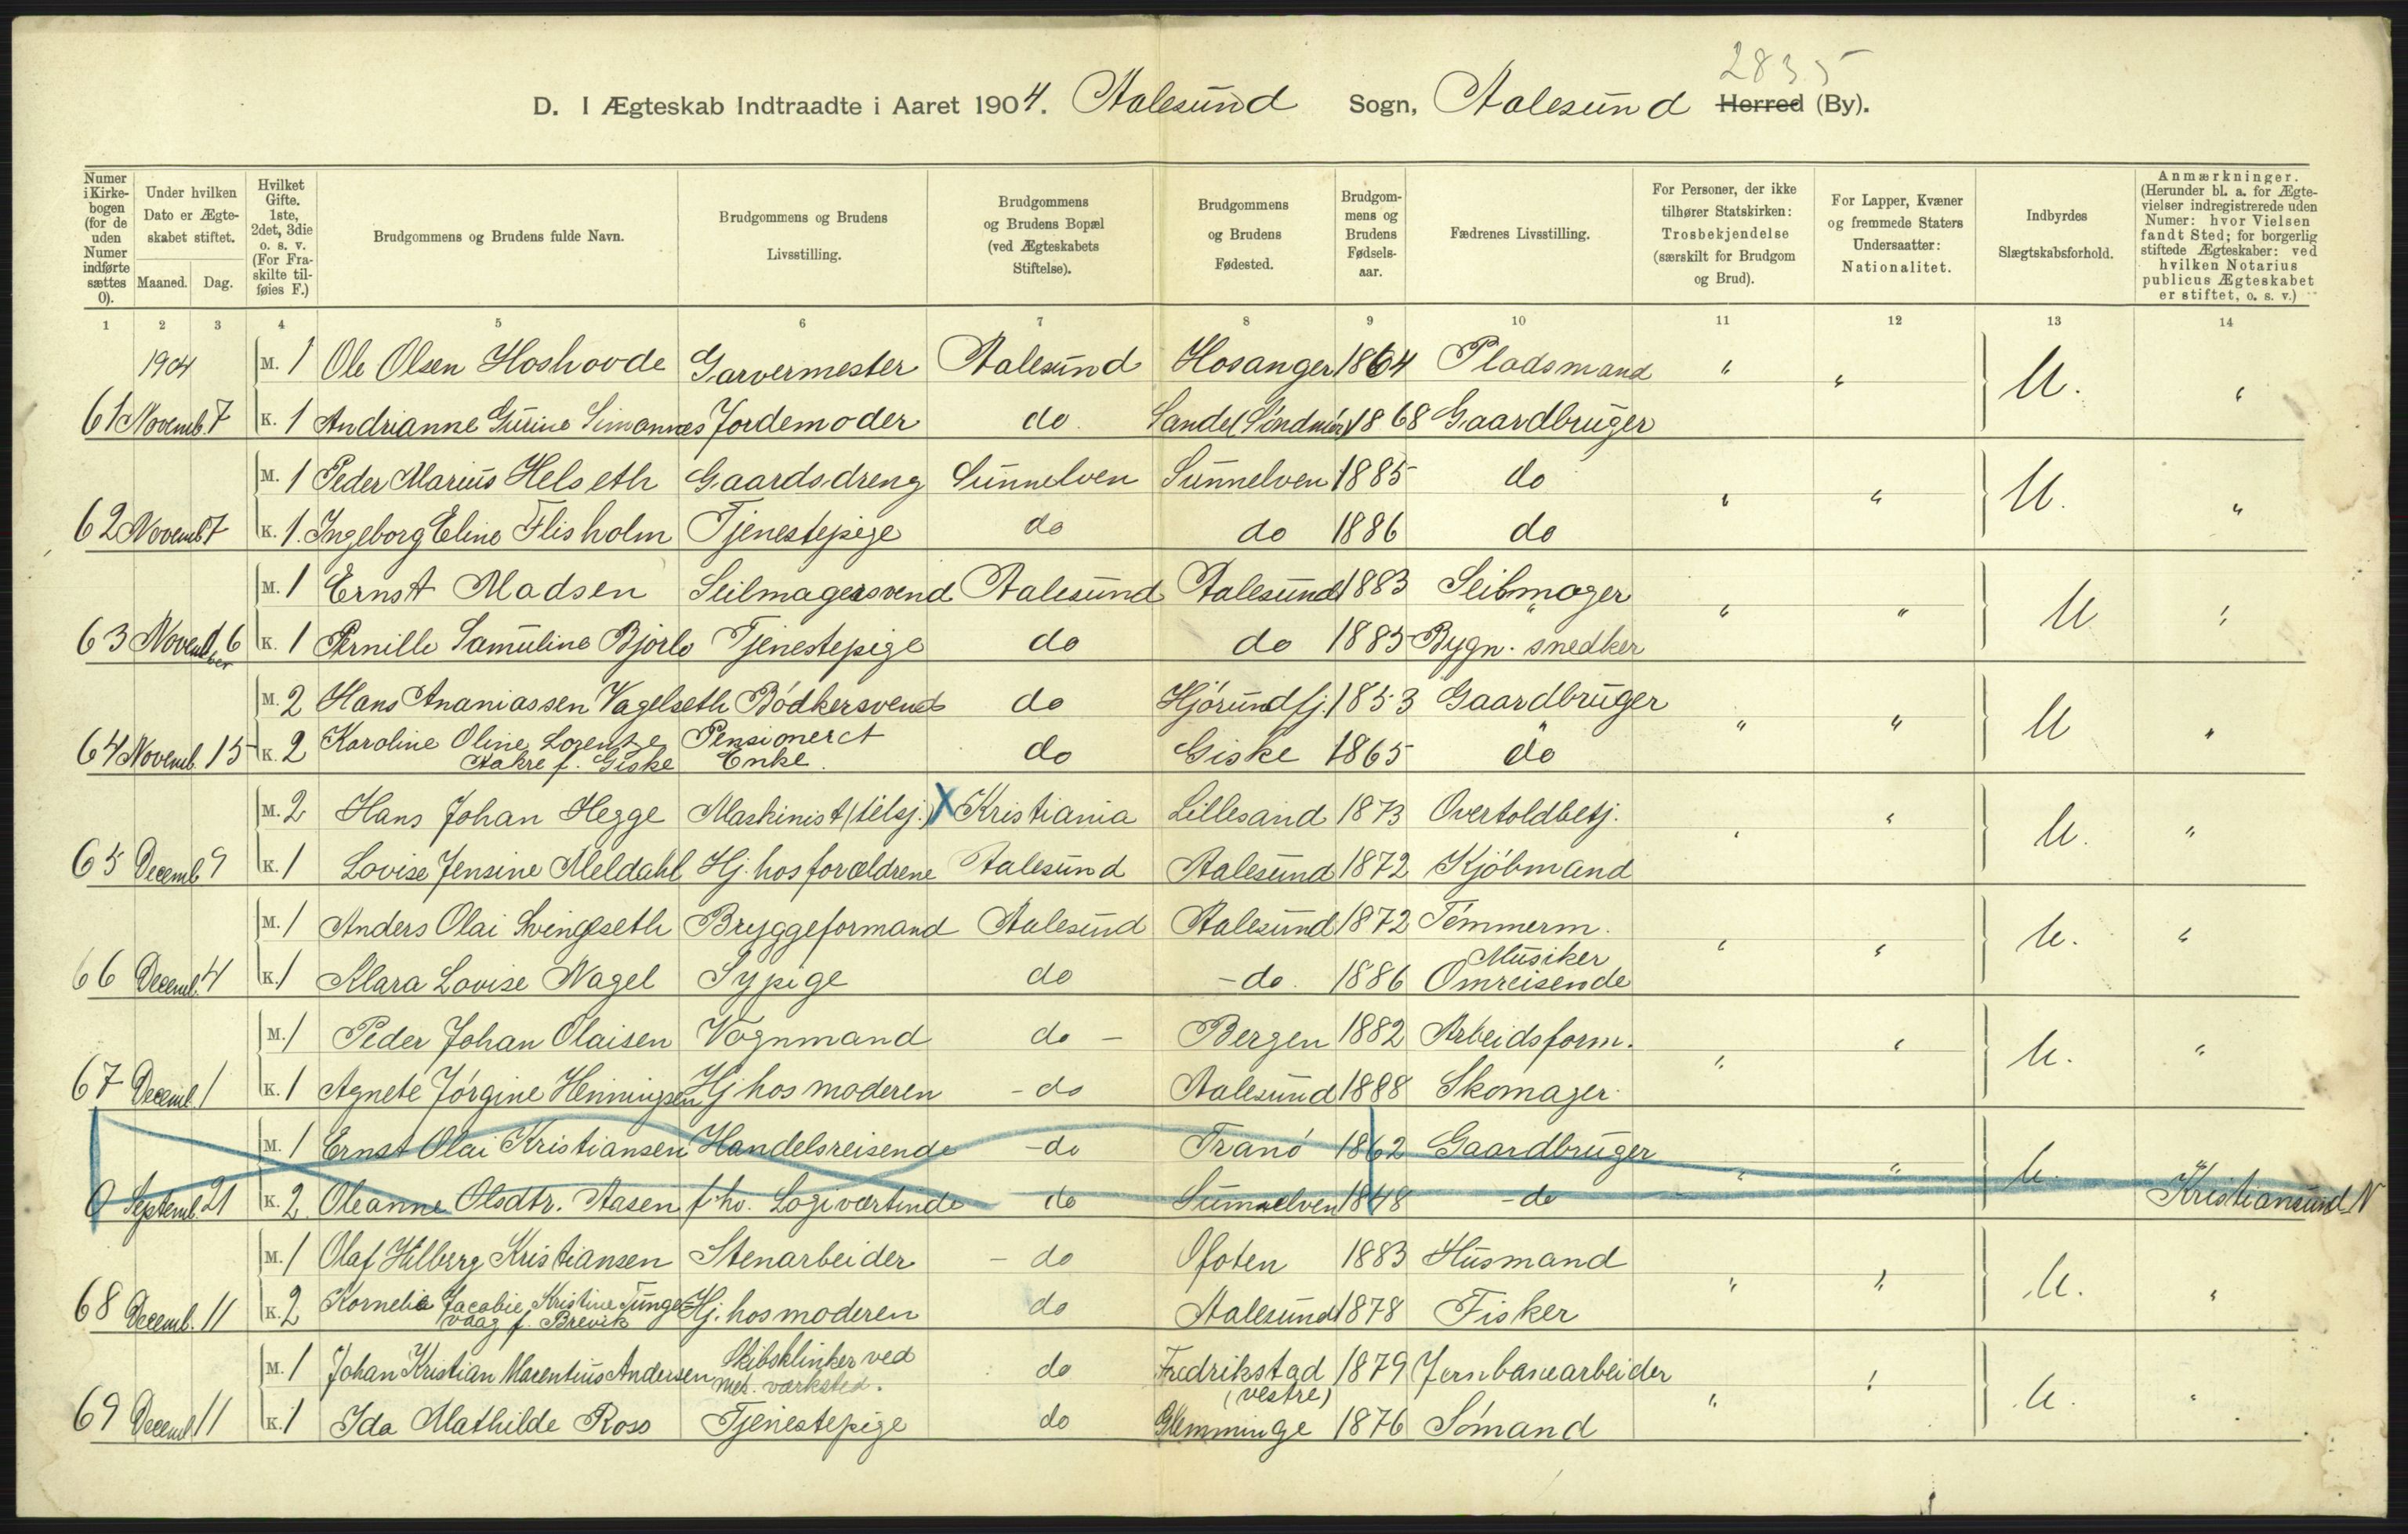 2835
D. I Ægteskab Indtraadte i Aaret 1904. Aalesund Sogn, Aalesund Herred (By).
Numer i Kirkebogen (for de uden Numer indførte sættes 0).
Under hvilken Dato er Ægteskabet stiftet.
Maaned. Dag.
Hvilket Gifte. 1ste, 2det, 3die o. s. v. (For Fraskilte tilføies F.)
Brudgommens og Brudens fulde Navn.
Brudgommens og Brudens Livsstilling.
Brudgommens og Brudens Bopæl (ved Ægteskabets Stiftelse).
Brudgommens og Brudens Fødested.
Brudgommens og Brudens Fødselsaar.
Fædrenes Livsstilling.
For Personer, der ikke tilhører Statskirken: Trosbekjendelse (særskilt for Brudgom og Brud).
For Lapper, Kvæner og fremmede Staters Undersaatter: Nationalitet.
Indbyrdes Slægtskabsforhold.
Anmærkninger. (Herunder bl. a. for Ægtevielser indregistrerede uden Numer: hvor Vielsen fandt Sted; for borgerlig stiftede Ægteskaber: ved hvilken Notarius publicus Ægteskabet er stiftet, o. s. v.)
1 2 3 4 5 6 7 8 9 10 11 12 13 14
1904 M. 1 Ole Olsen Hoshovde Garvermester Aalesund Hosanger 1864 Pladsmand " " U. "
61 Novemb. 7 K. 1 Andrianne Gurine Simonnes Jordemoder do. Sande (Söndmör) 1868 Gaardbruger
M. 1 Peder Marius Helseth Gaardsdreng Sunnelven Sunnelven 1885 do " " U. "
62 Novemb 7 K. 1. Ingeborg Eline Flisholm Tjenestepige do do 1886 do
M. 1 Ernst Madsen Seilmagersvend Aalesund Aalesund 1883 Seilmager " " U "
63 November 6 K. 1 Pernille Samuline Bjørlo Tjenestepige do do 1885 Bygn. snedker
M. 2 Hans Ananiassen Vagelseth Bödkersvend do Hjörundfj. 1853 Gaardbruger " " U "
64 Novemb. 15 K. 2 Karoline Oline Lorentze Aakre f. Giske Pensioneret Enke. do Giske 1865 do
M. 2 Hans Johan Hegge Maskinist (tilsj.) X Kristiania Lillesand 1873 Overtoldbetj. " " U. "
65 Decemb 9 K. 1 Lovise Jensine Meldahl Hj. hos forældrene Aalesund Aalesund 1872 Kjöbmand
M. 1 Anders Olai Svingeseth Bryggeformand Aalesund Aalesund 1872 Tömmerm. " " U. "
66 Decemb. 4 K. 1 Klara Lovise Nagel Sypige do - do. 1886 Omreisende Musiker
M. 1 Peder Johan Olaisen Vognmand do - Bergen 1882 Arbeidsform. " " U. "
67 Decemb. 1 K. 1 Agnete Jörgine Henningsen Hj hos moderen - do Aalesund 1888 Skomager
M. 1 Ernst Olai Kristiansen Handelsreisende - do Tranö 1862 Gaardbruger " " U. "
0 Septemb. 21 K. 2 Oleanne Olsdtr. Aasen f. hv. Logivertinde do Sunnelven 1848 - do Kristiansund N
M. 1 Olaf Hilberg Kristiansen Stenarbeider - do Ofoten 1883 Husmand " " U. "
68 Decemb. 11 K. 2 Kornelie Jacobie Kristine Tungevaag f. Brevik Hj. hos moderen do Aalesund 1878 Fisker
M. 1 Johan Kristian Marentius Andersen Skibsklinker ved mek. værksted. do Fredrikstad (vestre) 1879 Jernbanearbeider " " U. "
69 Decemb 11 K. 1 Ida Mathilde Ross Tjenestepige do Glemminge 1876 Sömand